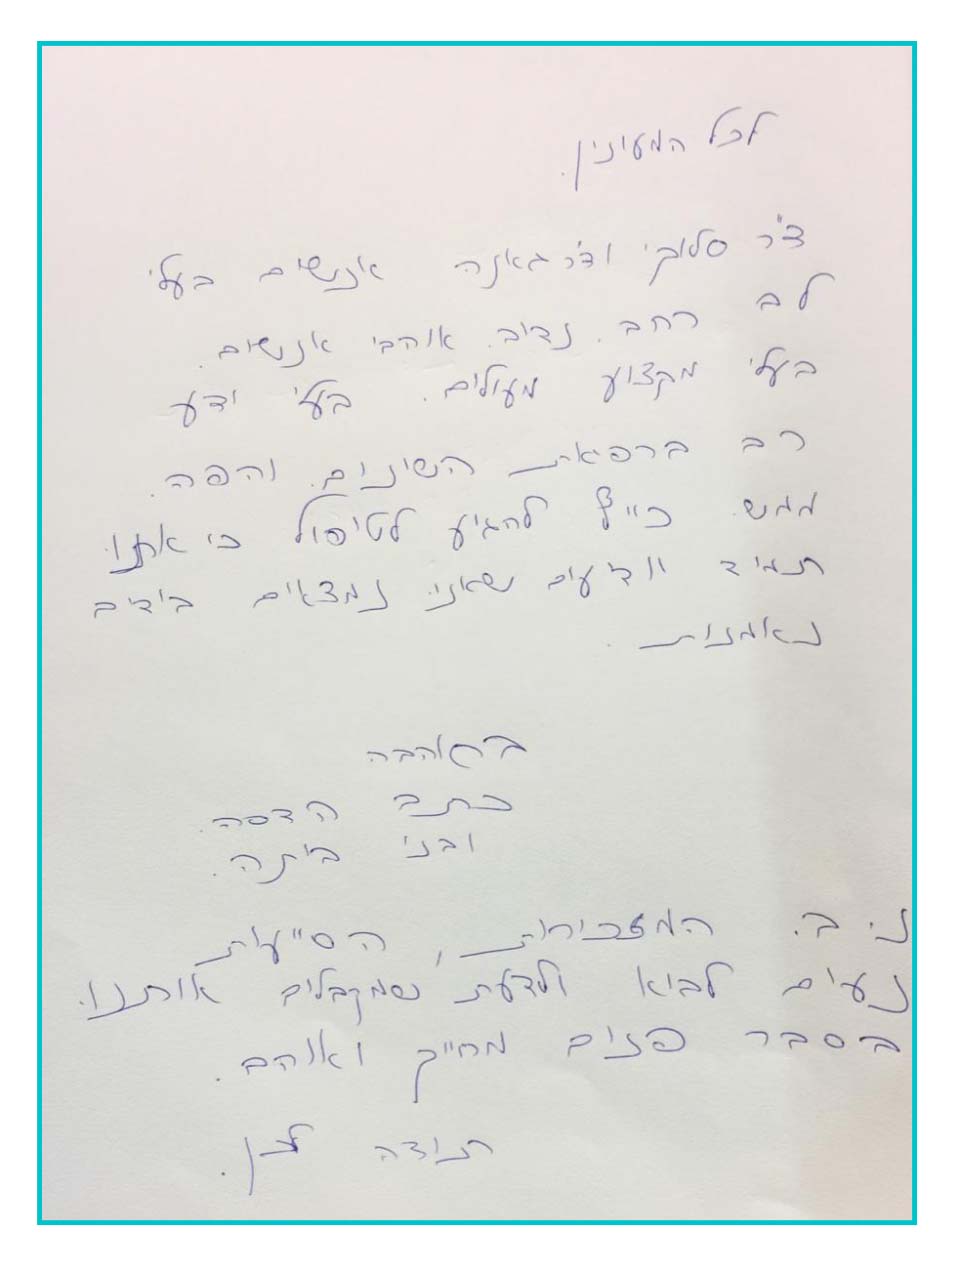 לכל המעונין.
ד"ר סלובקי וד"ר גאנה אנשים בעלי
לב רחב. נדיב. אוהבי אנשים.
בעלי מקצוע מעולים. בעלי ידע
רב ברפאת השינים. והפה.
ממש. כייף להגיע לטיפול כי אתנו.
תמיד יודעים שאני. נמצאים בידיים
נאמנות.
באהבה
כתב הדסה.
ובני ביתה.
נ. ב. המזכירות, הסייעות
נעים לבוא ולדעת שמקבלים אותנו.
בסבר פנים מחייך ואוהב.
תודה לכן.